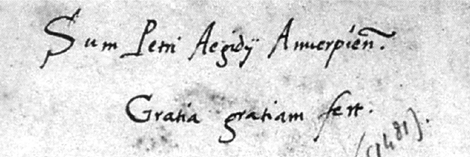 Sum Petri Aegidÿ Anuerpieñ.
Gratia gratiam fert.
(1481).